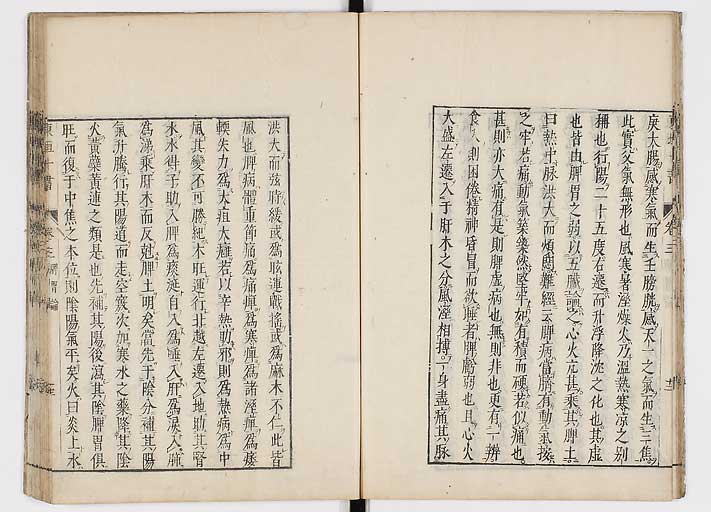 戾太腸感寒氣而生壬膀胱感天一之氣而生三焦
此實父氣無形也風寒暑溼燥火乃溫熱寒凉之別
稱也行陽二十五度右遷而升浮降沈之化也其虛
也皆由脾胃之弱以五臟論之心火亢甚乘其脾土
曰熱中脉洪大而煩悶難經云脾病當臍有動氣按
之牢若痛動氣築築然堅牢如有積而硬若似痛也
甚則亦大痛有是則脾虛病也無則非也更有一辨
食入則困倦精神昏冒而欲睡者脾虧弱也且心火
大盛左遷入于肝木之分風溼相搏一身盡痛其脉
洪大而弦時緩或爲眩運戰搖或爲麻木不仁此皆
風也脾病體重節痛爲痛痺爲寒痺爲諸溼痺爲痿
軟失力爲大疽大癰若以辛熱助邪則爲熱病爲中
風其變不可勝紀木旺運行北越左遷入地助其腎
水水得子助入脾爲痰涎自入爲唾入肝爲淚入肺
爲涕乘肝木而反尅脾土明矣當先于陰分補其陽
氣升騰行其陽道而走空竅次加寒水之藥降其陰
火黃蘗黃連之類是也先補其陽後瀉其陰脾胃俱
旺而復于中焦之本位則陰陽氣平矣火曰炎上水
東垣十書 卷之三 脾胃論